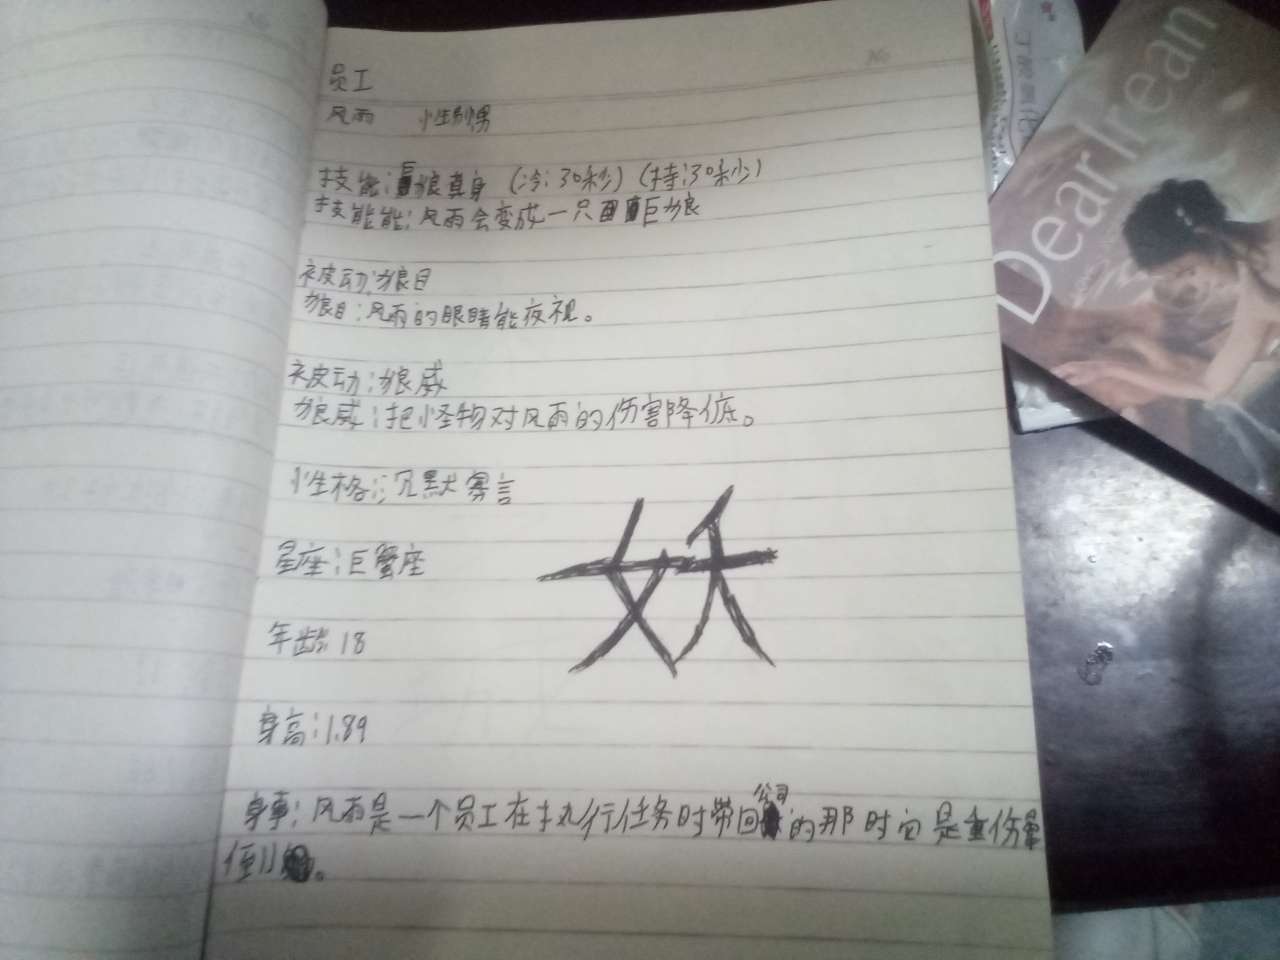 No
员工
风雨 性别男
技能:巨狼真身 (冷:30秒) (持:30秒)
技能能:风雨会变成一只巨狼
被动:狼目
狼目:风雨的眼睛能夜视。
被动:狼威
狼威:把怪物对风雨的伤害降低。
性格:沉默寡言
妖
星座:巨蟹座
年龄:18
身高:1.89
身事:风雨是一个员工在执行任务时带回公司的那时它是重伤晕
倒。
Dear Irean